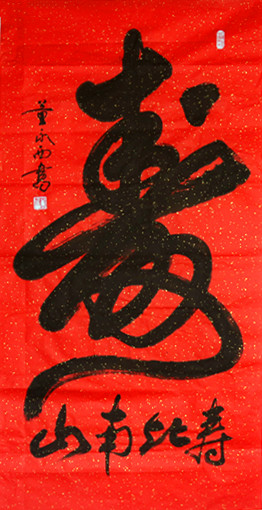 壽
寿比南山
董永西書